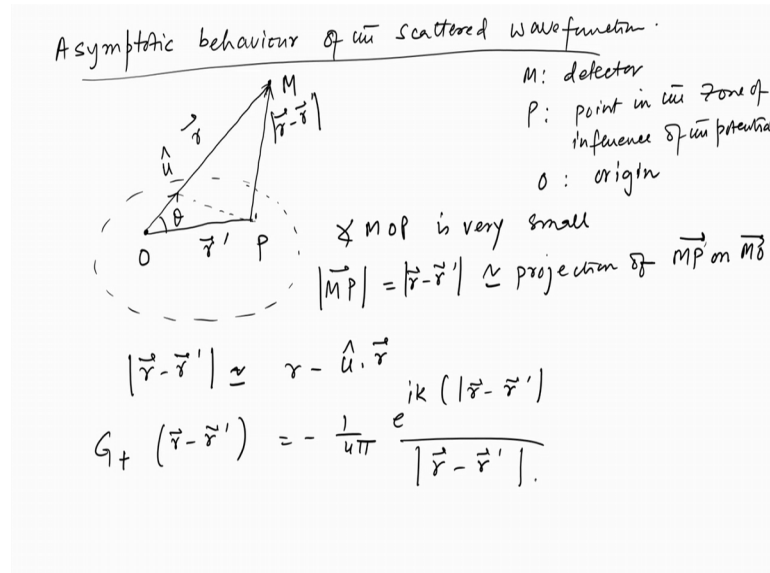 Asymptotic behaviour of the scattered wavefunction.
M: detector
P: point in the zone of
influence of the potential
O: origin
M
r⃗
|r⃗-r⃗'|
û
θ
O
r⃗'
P
∡ MOP is very small
|MP⃗| = |r⃗-r⃗'| ≃ projection of MP⃗ on MO⃗
|r⃗-r⃗'| ≃ r - û.r⃗
G₊ (r⃗-r⃗') = - 1/4π e^{ik(|r⃗-r⃗'|)} / |r⃗-r⃗'|.